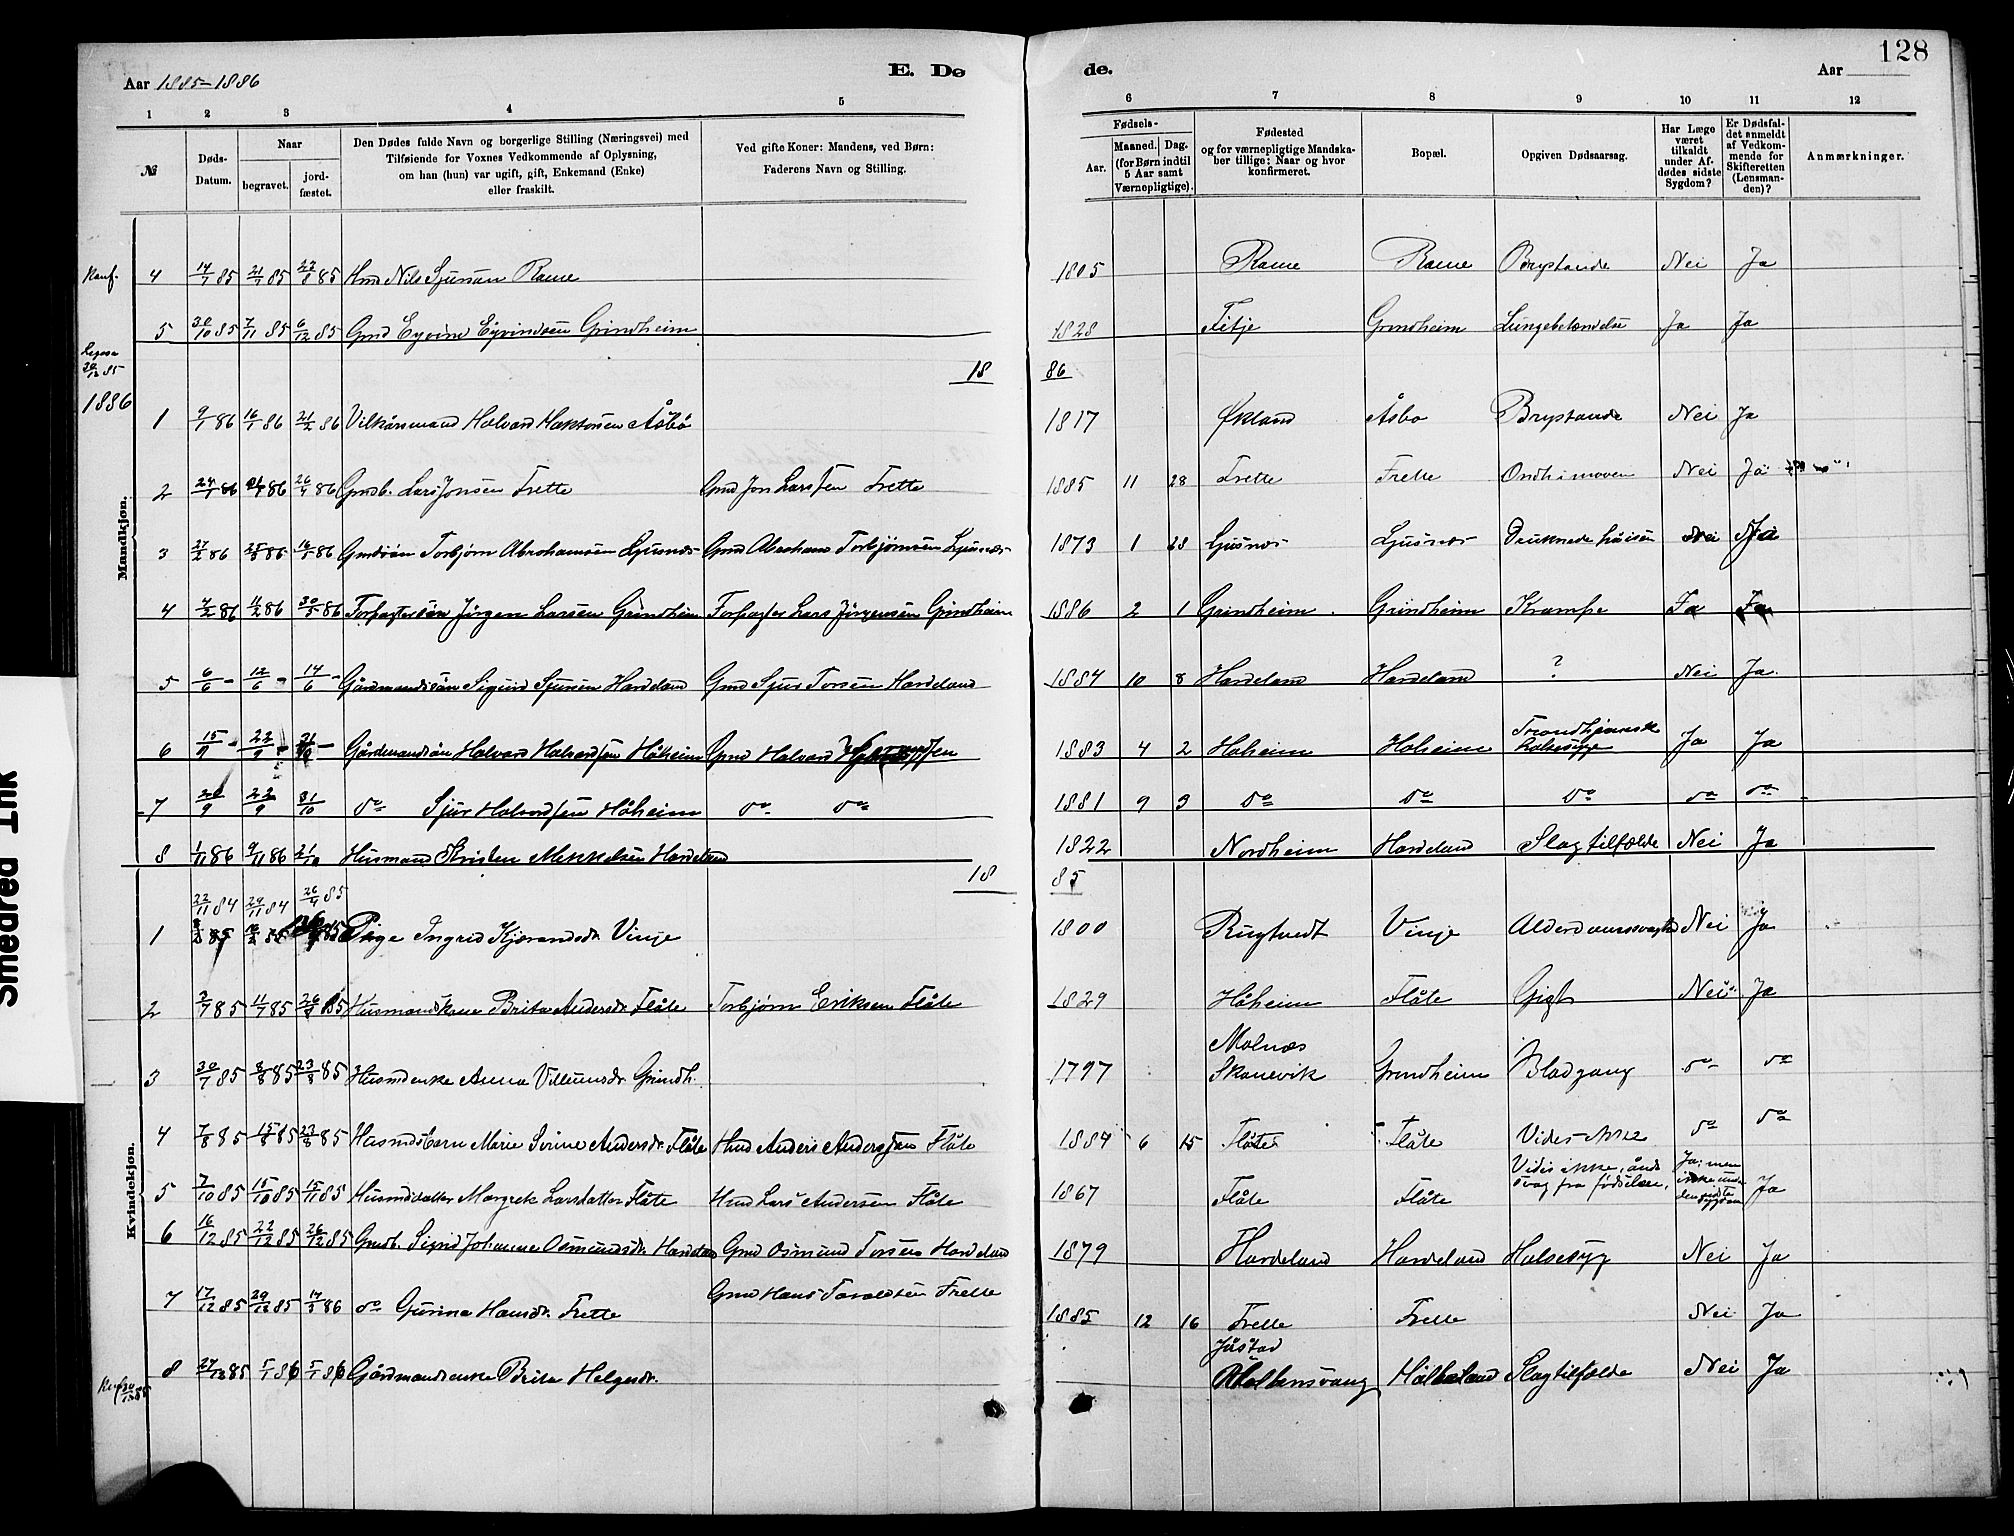 128
Aar 1885-1886
E. Dø
de.
Aar
1 2 3 4 5 6 7 8 9 10 11 12
№
Døds-Datum.
Naar
begravet.
jord-fæstet.
Den Dødes fulde Navn og borgerlige Stilling (Næringsvei) med
Tilføiende for Voxnes Vedkommende af Oplysning,
om han (hun) var ugift, gift, Enkemand (Enke)
eller fraskilt.
Ved gifte Koner: Mandens, ved Børn:
Faderens Navn og Stilling.
Fødsels-
Aar.
Maaned. Dag.
(for Børn indtil
5 Aar samt
Værnepligtige).
Fødested
og for værnepligtige Mandska-
ber tillige: Naar og hvor
konfirmeret.
Bopæl.
Opgiven Dødsaarsag.
Har Læge
været
tilkaldt
under Af-
dødes sidste
Sygdom?
Er Dødsfal-
det anmeldt
af Vedkom-
mende for
Skifteretten
(Lensman-
den)?
Anmærkninger.
Mandkjøn.
4 14/7 85 21/7 85 23/8 85 Hmd Nils Sjursen Rame 1805 Rame Rame Brystonde Nei Ja
5 30/10 85 7/11 85 6/12 85 Gmd Eyvind Eyvindsen Grindheim 1828 Fitje Grindheim Lungebetændelse Ja Ja
20/12 85
18 86
1886
1 9/1 86 16/1 86 21/2 86 Vilkårsmand Halvard Åsbø 1817 Økland Åsbø Brystonde Nei Ja
2 24/1 86 86 26/4 86 Gmdb. Lars Jonsen Frette Gmd Jon Larssen Frette 1885 11 28 Frette Frette Ondt i maven Nei Ja
3 27/2 86 86 16/5 86 Gmdsøn Torbjørn Abrahamsen Ljusnes Gmd Abraham Torbjørnsen Ljusnes 1873 1 28 Ljusnes Ljusnes Druknede Nei Ja
4 4/2 86 11/2 86 30/5 86 Forpagtersøn Jørgen Larsen Grindheim Forpagter Lars Jørgensen Grindheim 1886 2 1 Grindheim Grindheim Krampe Ja Ja
5 6/6 - 12/6 - 14/6 - Gårdmandssøn Sigurd Sjursen Hardeland Gmd Sjur Torsen Hardeland 1884 10 8 Hardeland Hardeland ? Nei Ja
6 15/9 - 22/9 - 31/10 - Gårdmandssøn Halvard Halvardsen Håheim Gmd Halvard 1883 4 2 Håheim Håheim Trondhjemsk Halsesyge Ja Ja
7 20/9 22/9 31/10 do Sjur Halvardsen Håheim do do 1881 9 3 do do do do do
8 1/11 86 9/11 86 21/10 Husmand Kristen Mikkelsen Hardeland 1822 Nordheim Hardeland Slagtilfælde Nei Ja
18 85
Kvindekjøn.
22/11 84 29/11 84 26/4 85
1 Pige Ingrid Kjørandsdr. Vinje 1800 Rugtvedt Vinje Alderdomssvaghed Nei Ja
2 3/7 85 11/7 85 26/7 85 Husmandskone Brita Andersdr. Flåte Torbjørn Eriksen Flåte 1829 Håheim Flåte Gigt Nei Ja
3 30/7 85 8/8 85 23/8 85 Husmdenke Anna Villumsdr. Grindh. 1797 Molnes Skonevik Grindheim Blodgang do do
4 7/8 85 15/8 85 23/8 85 Husmdsbarn Marie Serine Andersdr. Flåte Hmd Anders Anderssen Flåte 1884 6 15 Flåte Flåte Vides ikke do do
5 7/10 85 15/10 85 15/11 85 Husmddatter Margrete Larsdatter Flåte Hmd Lars Andersen Flåte 1867 Flåte Flåte Vides ikke, ånds svag fra fødselen, Ja, men ikke under den sidste sygdom Ja
6 16/12 85 22/12 85 26/12 85 Gmdb. Sigrid Johanne Osmundsdr. Hardeland Gmd Osmund Torsen Hardeland 1879 Hardeland Hardeland Halsesyg Nei Ja
7 17/12 85 29/12 85 14/3 86 do Gurina Hansdr. Frette Gmd Hans Taraldsen Frette 1885 12 16 Frette Frette Nei Ja
8 27/12 85 5/1 86 5/1 86 Gårdmandsenke Brita Helgesdr. Jåstad Ullensvang Slagtilfælde Nei Ja
Smedred Ink